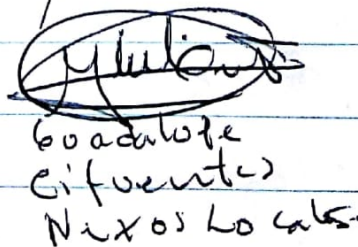 Guadalupe
Cifuentes
Nexos Locales.